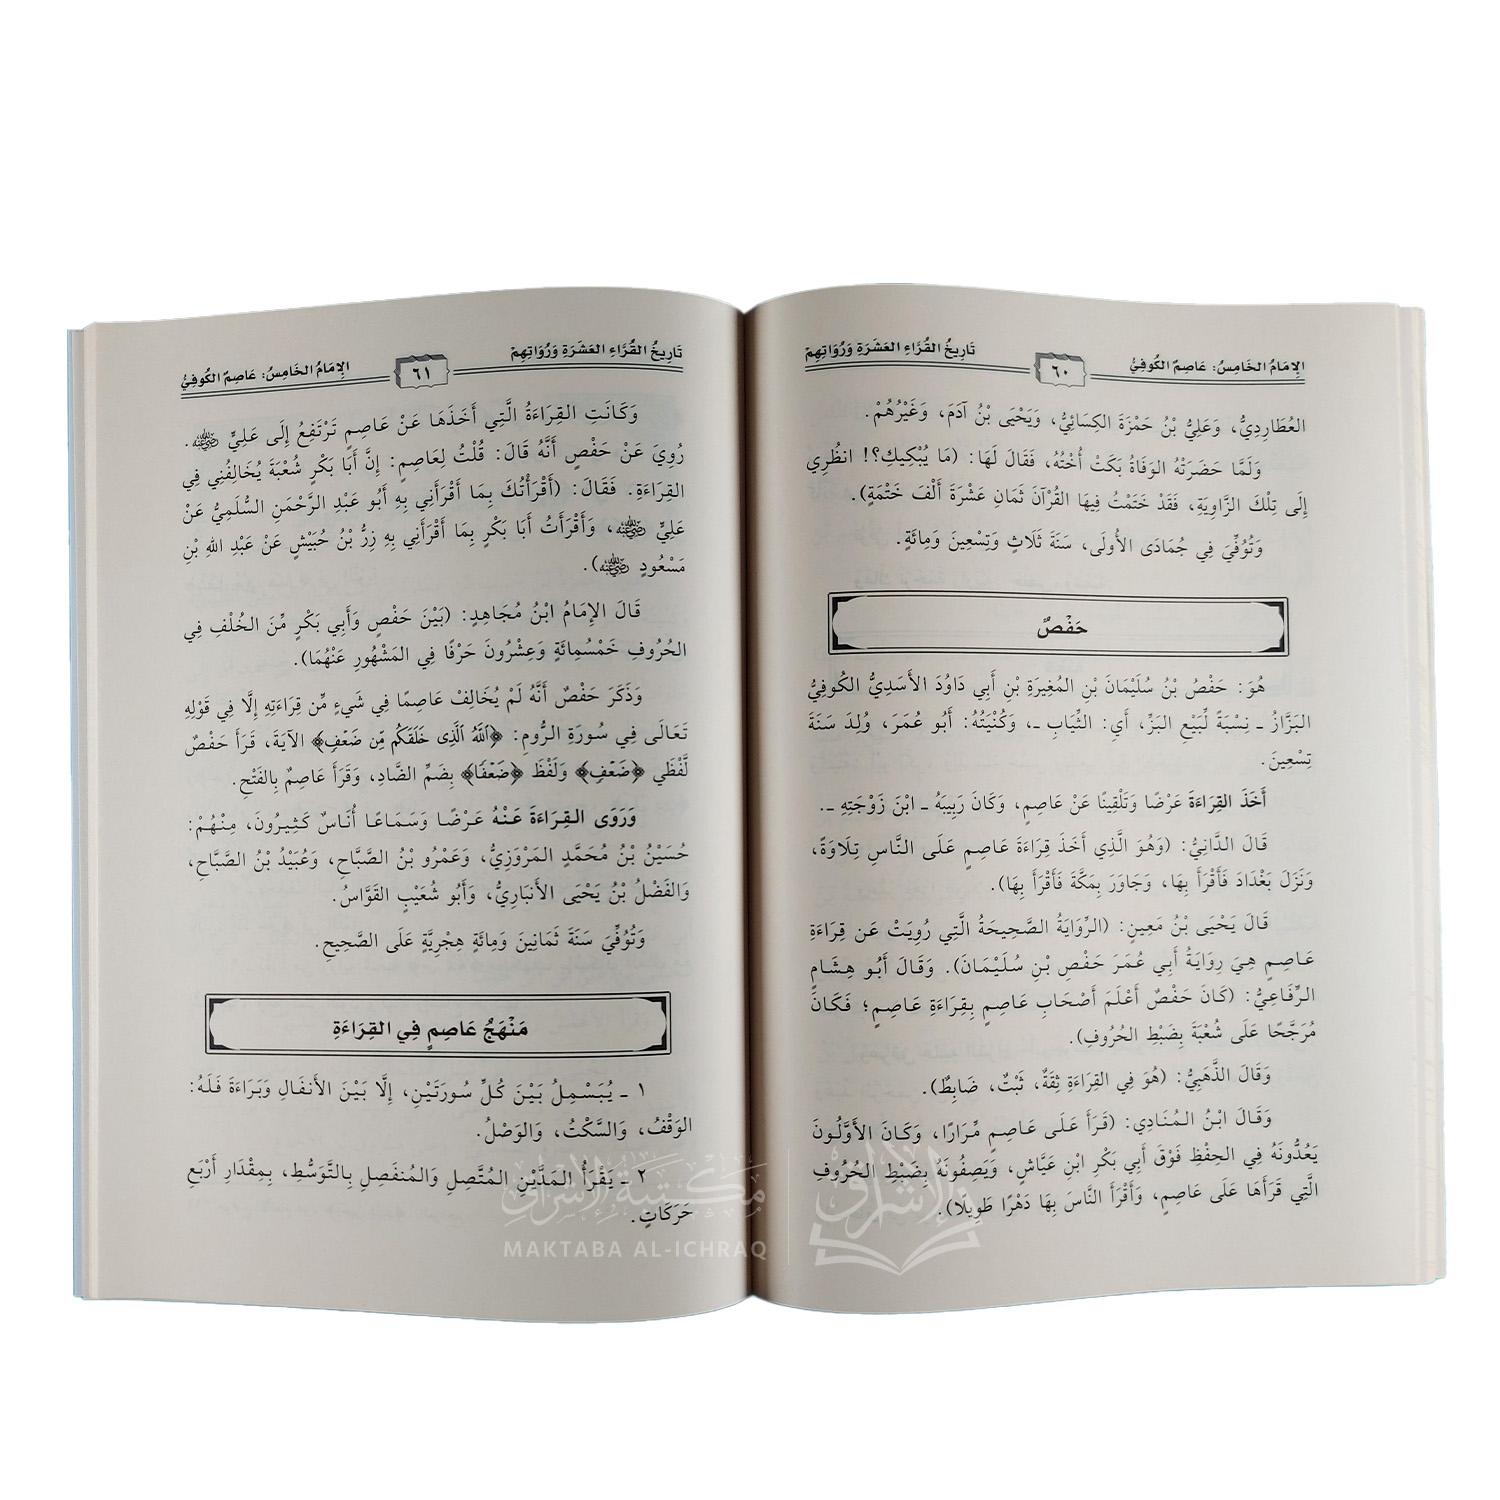 الإِمَامُ الخَامِسُ: عَاصِمٌ الكُوفِيُّ
٦٠
تَارِيخُ القُرَّاءِ العَشَرَةِ وَرُوَاتِهِمْ
العُطَارِدِيُّ، وَعَلِيُّ بْنُ حَمْزَةَ الكِسَائِيُّ، وَيَحْيَى بْنُ آدَمَ، وَغَيْرُهُمْ.
وَلَمَّا حَضَرَتْهُ الوَفَاةُ بَكَتْ أُخْتُهُ، فَقَالَ لَهَا: (مَا يُبْكِيكِ؟! انظُرِي
إِلَى تِلْكَ الزَّاوِيَةِ، فَقَدْ خَتَمْتُ فِيهَا القُرْآنَ ثَمَانِ عَشْرَةَ أَلْفَ خَتْمَةٍ).
وَتُوُفِّيَ فِي جُمَادَى الأُولَى، سَنَةَ ثَلَاثٍ وَتِسْعِينَ وَمِائَةٍ.
حَفْصٌ
هُوَ: حَفْصُ بْنُ سُلَيْمَانَ بْنِ المُغِيرَةِ بْنِ أَبِي دَاوُدَ الأَسَدِيُّ الكُوفِيُّ
البَزَّازُ ـ نِسْبَةً لِّبَيْعِ البَزِّ، أَيِ: الثِّيَابِ ـ، وَكُنْيَتُهُ: أَبُو عُمَرَ، وُلِدَ سَنَةَ
تِسْعِينَ.
أَخَذَ القِرَاءَةَ عَرْضًا وَتَلْقِينًا عَنْ عَاصِمٍ، وَكَانَ رَبِيبَهُ ـ ابْنَ زَوْجَتِهِ ـ.
قَالَ الدَّانِيُّ: (وَهُوَ الَّذِي أَخَذَ قِرَاءَةَ عَاصِمٍ عَلَى النَّاسِ تِلَاوَةً،
وَنَزَلَ بَغْدَادَ فَأَقْرَأَ بِهَا، وَجَاوَرَ بِمَكَّةَ فَأَقْرَأَ بِهَا).
قَالَ يَحْيَى بْنُ مَعِينٍ: (الرِّوَايَةُ الصَّحِيحَةُ الَّتِي رُوِيَتْ عَن قِرَاءَةِ
عَاصِمٍ هِيَ رِوَايَةُ أَبِي عُمَرَ حَفْصِ بْنِ سُلَيْمَانَ). وَقَالَ أَبُو هِشَامٍ
الرِّفَاعِيُّ: (كَانَ حَفْصٌ أَعْلَمَ أَصْحَابِ عَاصِمٍ بِقِرَاءَةِ عَاصِمٍ؛ فَكَانَ
مُرَجَّحًا عَلَى شُعْبَةَ بِضَبْطِ الحُرُوفِ).
وَقَالَ الذَّهَبِيُّ: (هُوَ فِي القِرَاءَةِ ثِقَةٌ، ثَبْتٌ، ضَابِطٌ).
وَقَالَ ابْنُ المُنَادِي: (قَرَأَ عَلَى عَاصِمٍ مِّرَارًا، وَكَانَ الأَوَّلُونَ
يَعُدُّونَهُ فِي الحِفْظِ فَوْقَ أَبِي بَكْرِ ابْنِ عَيَّاشٍ، وَيَصِفُونَهُ بِضَبْطِ الحُرُوفِ
الَّتِي قَرَأَهَا عَلَى عَاصِمٍ، وَأَقْرَأَ النَّاسَ بِهَا دَهْرًا طَوِيلًا).
تَارِيخُ القُرَّاءِ العَشَرَةِ وَرُوَاتِهِمْ
٦١
الإِمَامُ الخَامِسُ: عَاصِمٌ الكُوفِيُّ
وَكَانَتِ القِرَاءَةُ الَّتِي أَخَذَهَا عَنْ عَاصِمٍ تَرْتَفِعُ إِلَى عَلِيٍّ رضي الله عنه.
رُوِيَ عَنْ حَفْصٍ أَنَّهُ قَالَ: قُلْتُ لِعَاصِمٍ: إِنَّ أَبَا بَكْرٍ شُعْبَةَ يُخَالِفُنِي فِي
القِرَاءَةِ. فَقَالَ: (أَقْرَأْتُكَ بِمَا أَقْرَأَنِي بِهِ أَبُو عَبْدِ الرَّحْمَنِ السُّلَمِيُّ عَنْ
عَلِيٍّ رضي الله عنه، وَأَقْرَأْتُ أَبَا بَكْرٍ بِمَا أَقْرَأَنِي بِهِ زِرُّ بْنُ حُبَيْشٍ عَنْ عَبْدِ اللهِ بْنِ
مَسْعُودٍ رضي الله عنه).
قَالَ الإِمَامُ ابْنُ مُجَاهِدٍ: (بَيْنَ حَفْصٍ وَأَبِي بَكْرٍ مِّنَ الخُلْفِ فِي
الحُرُوفِ خَمْسُمِائَةٍ وَعِشْرُونَ حَرْفًا فِي المَشْهُورِ عَنْهُمَا).
وَذَكَرَ حَفْصٌ أَنَّهُ لَمْ يُخَالِفْ عَاصِمًا فِي شَيْءٍ مِّن قِرَاءَتِهِ إِلَّا فِي قَوْلِهِ
تَعَالَى فِي سُورَةِ الرُّومِ: ﴿ٱللَّهُ ٱلَّذِى خَلَقَكُم مِّن ضَعْفٍ﴾ الآيَةَ، قَرَأَ حَفْصٌ
لَّفْظَي ﴿ضَعْفٍ﴾ وَلَفْظَ ﴿ضَعْفًا﴾ بِضَمِّ الضَّادِ، وَقَرَأَ عَاصِمٌ بِالفَتْحِ.
وَرَوَى القِرَاءَةَ عَنْهُ عَرْضًا وَسَمَاعًا أُنَاسٌ كَثِيرُونَ، مِنْهُمْ:
حُسَيْنُ بْنُ مُحَمَّدٍ المَرْوَزِيُّ، وَعَمْرُو بْنُ الصَّبَّاحِ، وَعُبَيْدُ بْنُ الصَّبَّاحِ،
وَالفَضْلُ بْنُ يَحْيَى الأَنبَارِيُّ، وَأَبُو شُعَيْبٍ القَوَّاسُ.
وَتُوُفِّيَ سَنَةَ ثَمَانِينَ وَمِائَةٍ هِجْرِيَّةٍ عَلَى الصَّحِيحِ.
مَنْهَجُ عَاصِمٍ فِي القِرَاءَةِ
١ ـ يُبَسْمِلُ بَيْنَ كُلِّ سُورَتَيْنِ، إِلَّا بَيْنَ الأَنفَالِ وَبَرَاءَةَ فَلَهُ:
الوَقْفُ، وَالسَّكْتُ، وَالوَصْلُ.
٢ ـ يَقْرَأُ المَدَّيْنِ المُتَّصِلِ وَالمُنفَصِلِ بِالتَّوَسُّطِ، بِمِقْدَارِ أَرْبَعِ
حَرَكَاتٍ.
مكتبة الإشراق
MAKTABA AL-ICHRAQ
الإشراق